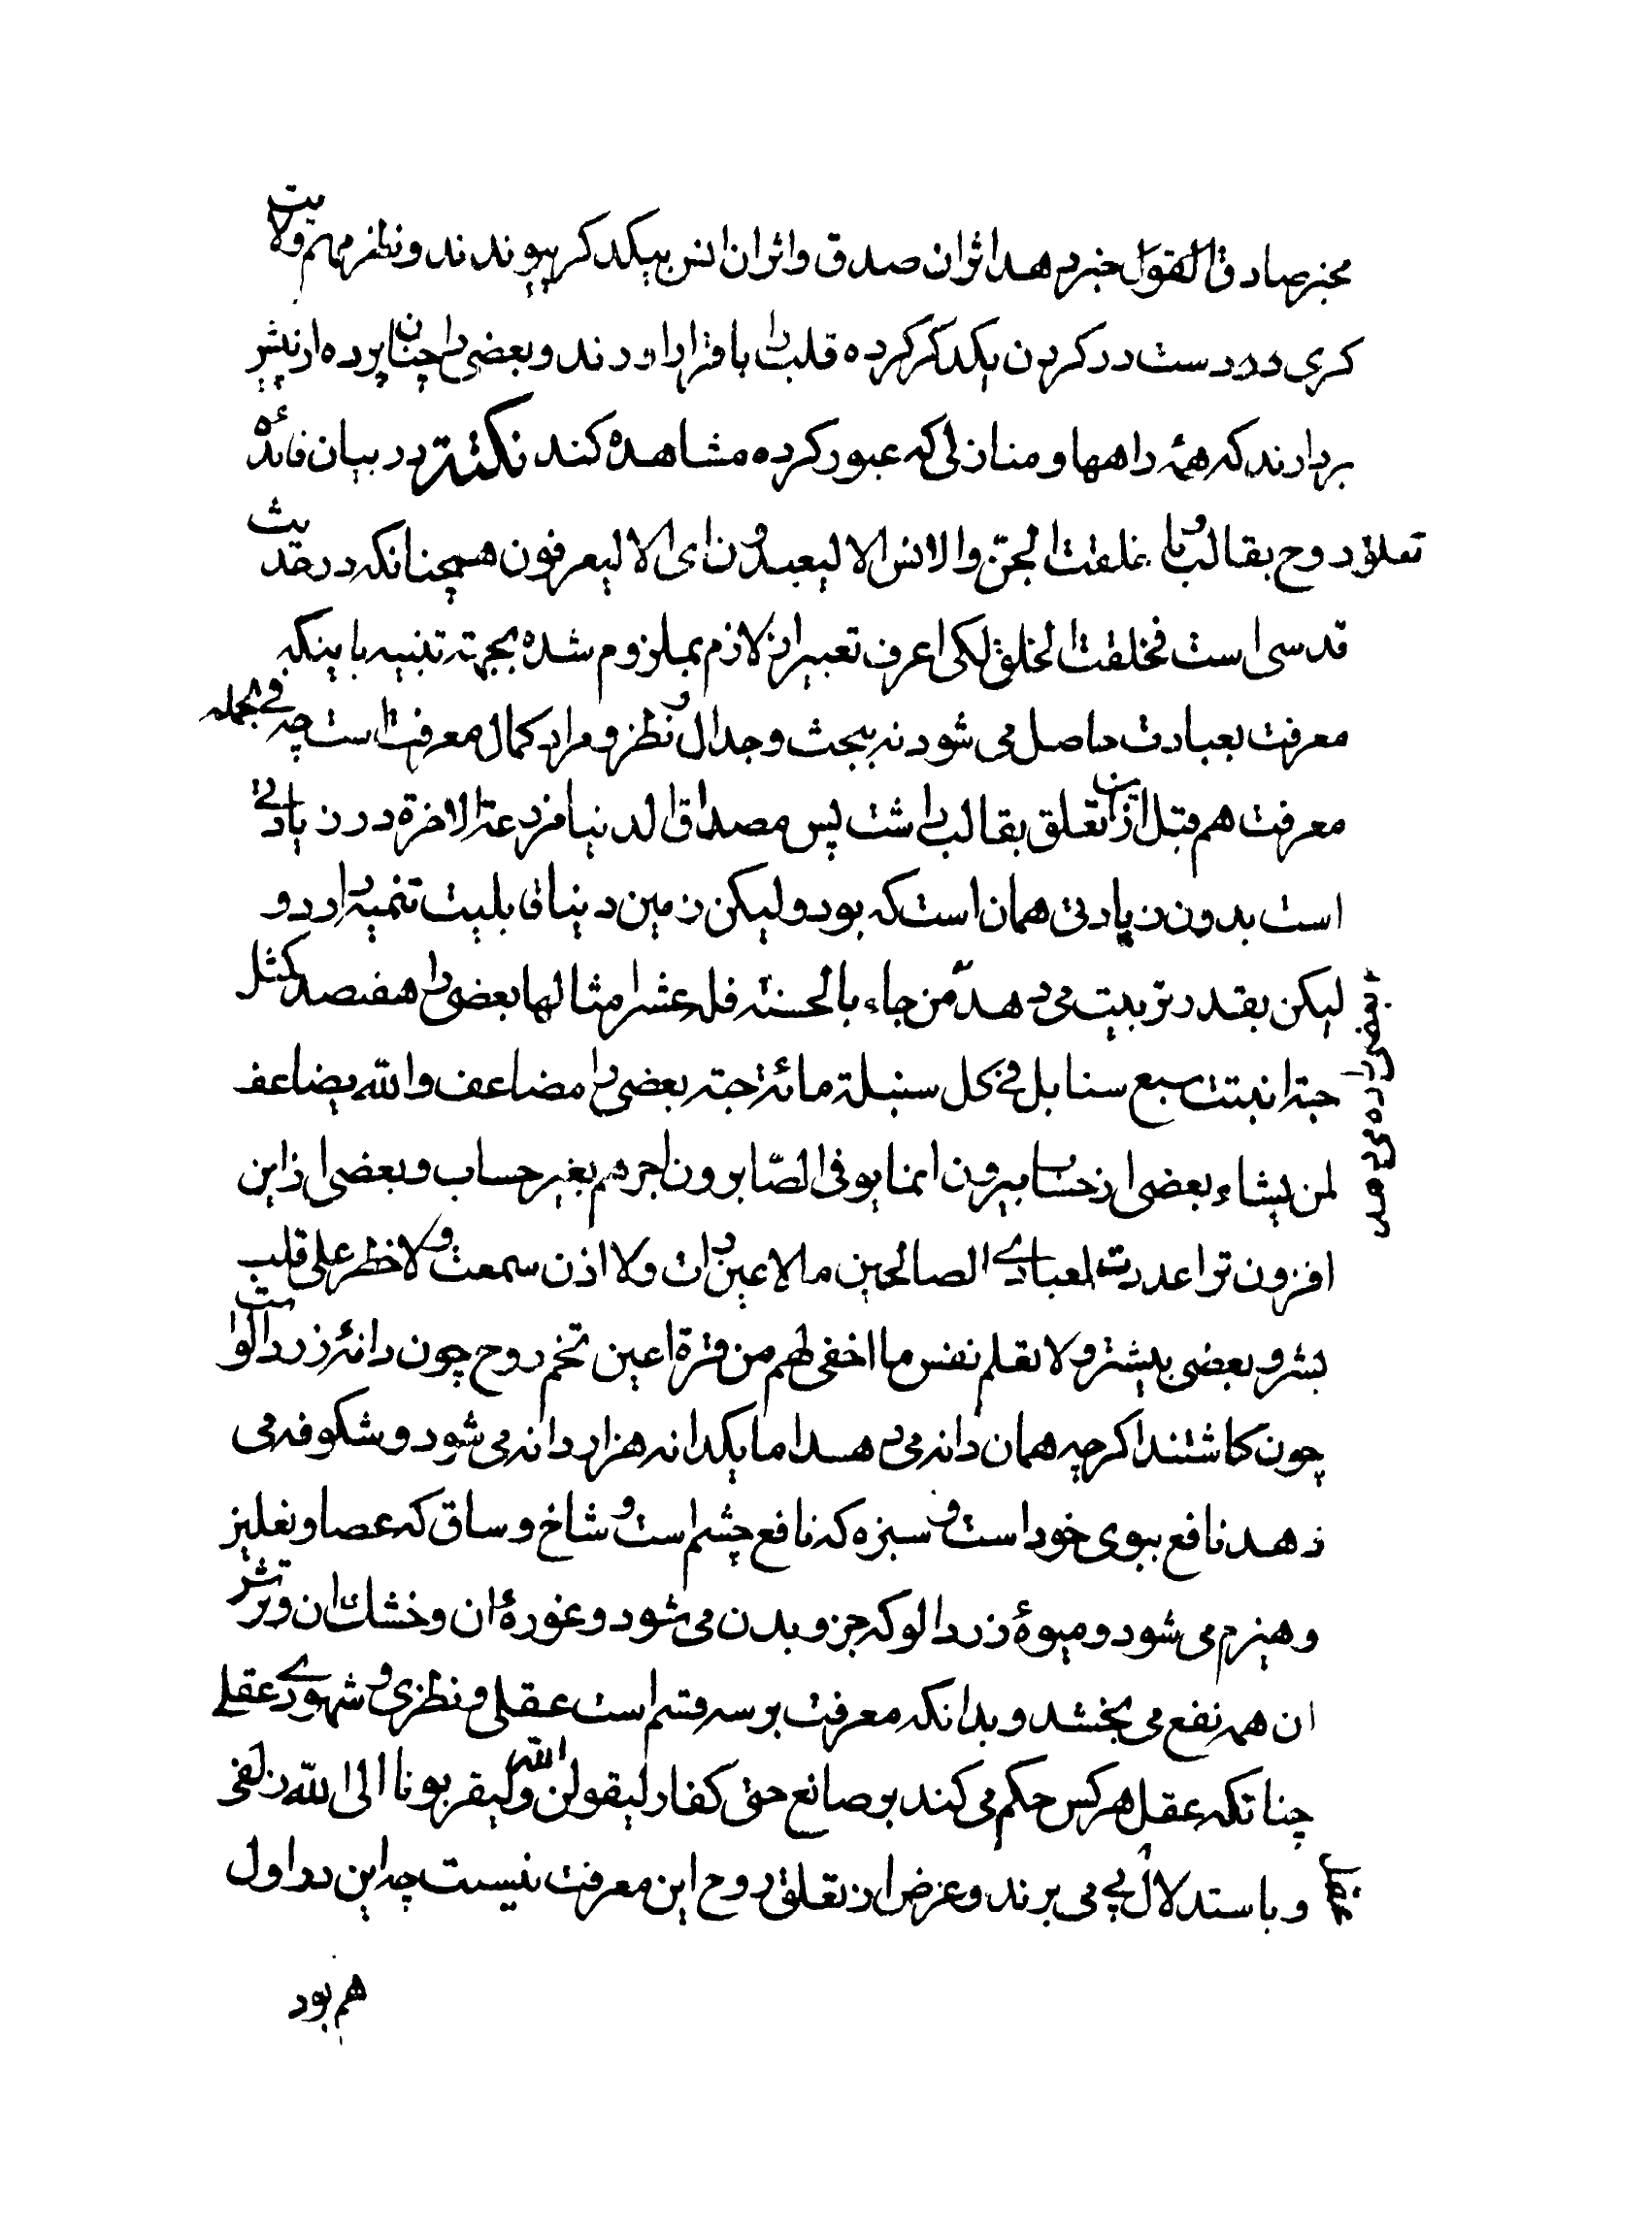 مخبر صادق القول خبر دهد اثر ان صدق و اثر ان انس بیکدکر پیوندند و نظر مهم ولایت
کری در دست در کردن یکدکر کرده قلب را باقرار اورند و بعضی را چنان پرده از پیش
بردارند که همهٔ راهها و منازلی که عبور کرده مشاهده کند نکتة در بیان فائدهٔ
تعلق روح بقالب و ما خلقت الجنّ والانس الا لیعبدون ای الا لیعرفون همچنانکه در حدیث
قدسی است فخلقت الخلق لکی اعرف تعبیر از لازم بملزوم شده بجهة تنبیه باینکه
معرفت بعبادت حاصل می شود نه ببحث و جدال و نظر و مراد کمال معرفت است چه فی الجمله
معرفت هم قبل از این تعلق بقالب داشت پس مصداق الدنیا مزرعة الاخرة در زیادتی
است بدون زیادتی همان است که بود ولیکن زمین دنیا قابلیت تنمیه دارد و
لیکن بقدر تربیت می دهد من جاء بالحسنة فله عشر امثالها بعضی را هفصد کمثل
حبة انبتت سبع سنابل فی کل سنبلة مائة حبة بعضی را مضاعف والله یضاعف
لمن یشاء بعضی از حساب بیرون انما یوفی الصّابرون اجرهم بغیر حساب و بعضی از این
افزون تر اعددت لعبادی الصالحین ما لا عین رات ولا اذن سمعت ولا خطر علی قلب
بشر و بعضی بیشتر ولا تعلم نفس ما اخفی لهم من قرة اعین تخم روح چون دانهٔ زردالو است
چون کاشتند اکرچه همان دانه می دهد اما یکدانه هزار دانه می شود و شکوفه می
دهد نافع ببوی خود است و سبزه که نافع چشم است و شاخ و ساق که عصا و نعلین
و هیزم می شود و میوهٔ زردالو که جزو بدن می شود و غورهٔ ان و خشک ان و ترش
ان همه نفع می بخشد و بدانکه معرفت بر سه قسم است عقلی و نظری و شهودی عقلی
چنانکه عقل هر کس حکم می کند بر صانع حق کفار لیقولن الله و لیقربونا الی الله زلفی
و باستدلال پی می برند و غرض از تعلق روح این معرفت نیست چه این در اول
هم بود
بعضی را ده می دهد